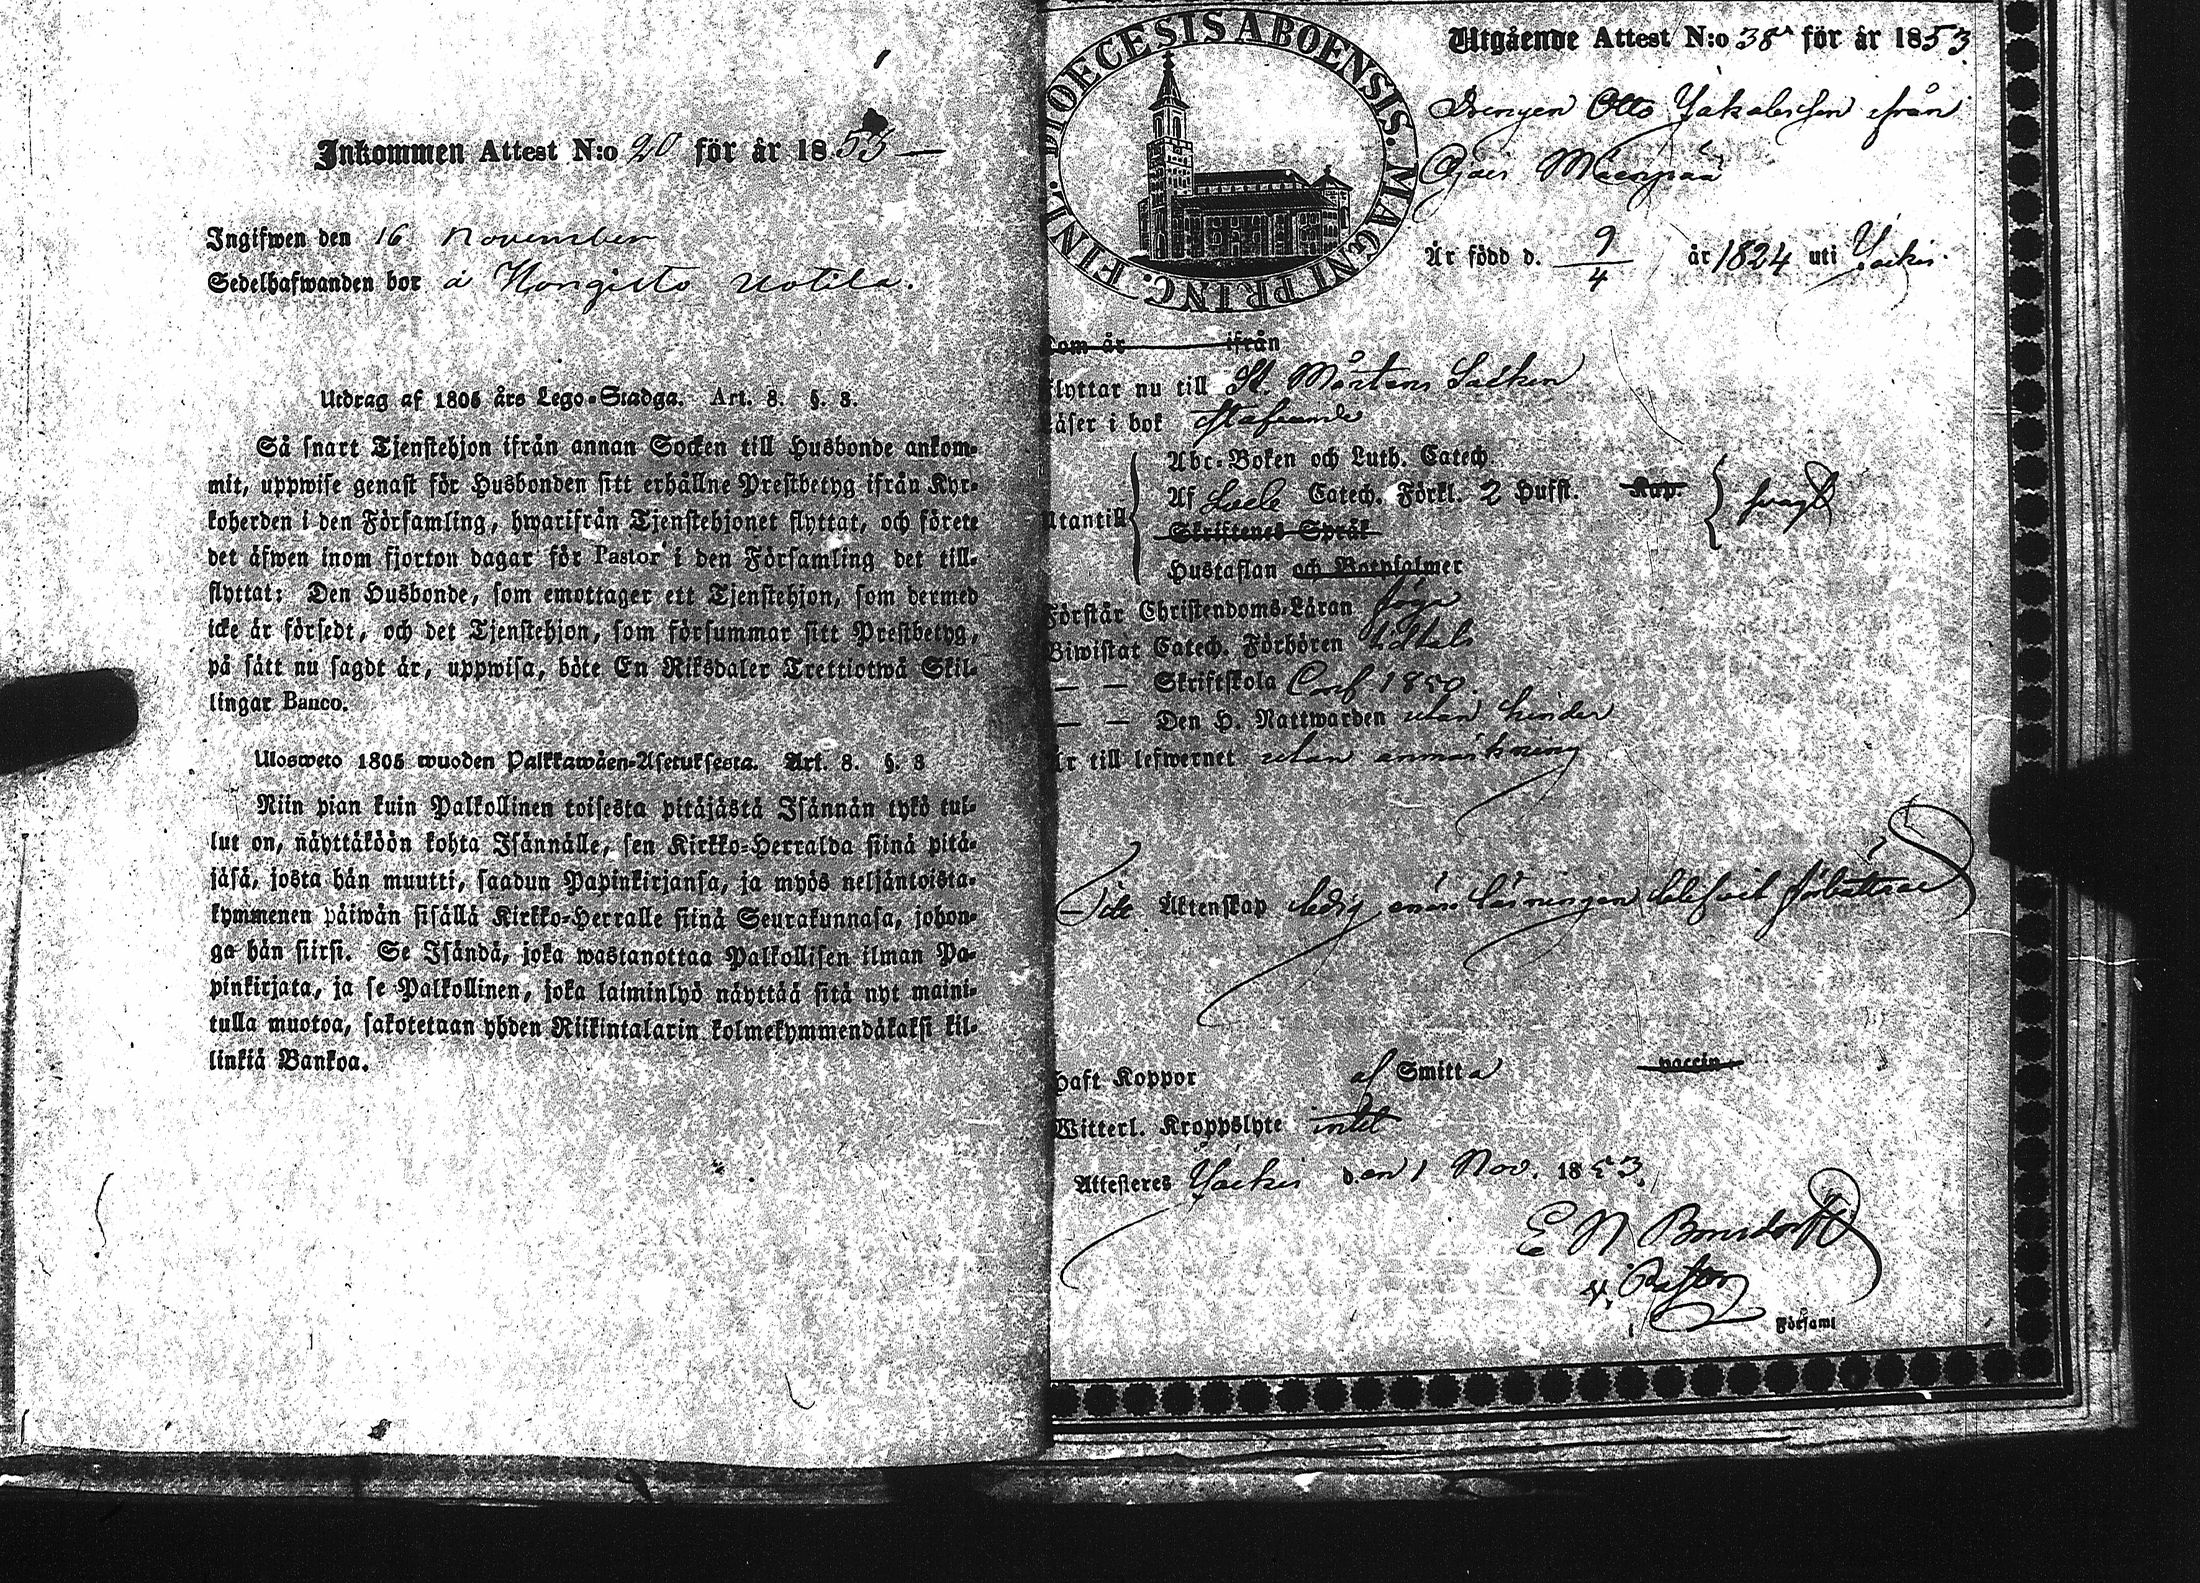 Inkommen Attest N:o 20 för år 1853
Ingifwen den 16 November
Sedelhafwanden bor å Hongisto Uotila.
Utdrag af 1805 års Lego-Stadga. Art. 8. §. 3.
Så snart Tjenstehjon ifrån annan Socken till Husbonde ankom-
mit, uppwise genast för Husbonden sitt erhållne Prestbetyg ifrån Kyr-
koherden i den Församling, hwarifrån Tjenstehjonet flyttat, och förete
det äfwen inom fjorton dagar för Pastor i den Församling det till-
flyttat: Den Husbonde, som emottager ett Tjenstehjon, som dermed
icke är försedt, och det Tjenstehjon, som försummar sitt Prestbetyg,
på sätt nu sagdt är, uppwisa, böte En Riksdaler Trettiotwå Skil-
lingar Banco.
Ulosweto 1805 wuoden Palkkawäen-Asetuksesta. Art. 8. §. 3
Niin pian kuin Palkollinen toisesta pitäjästä Isännän tykö tul-
lut on, näyttäköön kohta Isännälle, sen Kirkko-Herralda siinä pitä-
jäsä, josta hän muutti, saadun Papinkirjansa, ja myös neljäntoista-
kymmenen päiwän sisällä Kirkko-Herralle siinä Seurakunnasa, johon-
ga hän siirsi. Se Isändä, joka wastanottaa Palkollisen ilman Pa-
pinkirjata, ja se Palkollinen, joka laiminlyö näyttää sitä nyt maini-
tulla muotoa, sakotetaan yhden Riikintalarin kolmekymmendäkaksi kil-
linkiä Bankoa.
DIOECESIS ABOENSIS. MAGNI PRINC. FINL.
Utgående Attest N:o 38 för år 1853
Drengen Otto Jakobsson ifrån
Ojais Mäenpää
Är född d. 9/4 år 1824 uti Jockis
kom år ifrån
flyttar nu till St. Mårtens Socken
Läser i bok stafvande
Abc-Boken och Luth. Catech.
Af Catech. Förkl. 2 Hufst. Kap.
Utantill
svagt
Skriftenes Språk
Hustaflan och Botpsalmer
Förstår Christendoms-Läran föga
Biwistat Catech. Förhören
— — Skriftskola Conf. 1850.
— — Den H. Nattwarden utan hinder
Är till lefwernet utan anmärkning
Till Äktenskap ledig
haft Koppor af Smitta vaccin
Witterl. Kroppslyte intet
Attesteras Jockis den 1 Nov. 1853.
E N Bonsdorff
v. Pastor
Församl